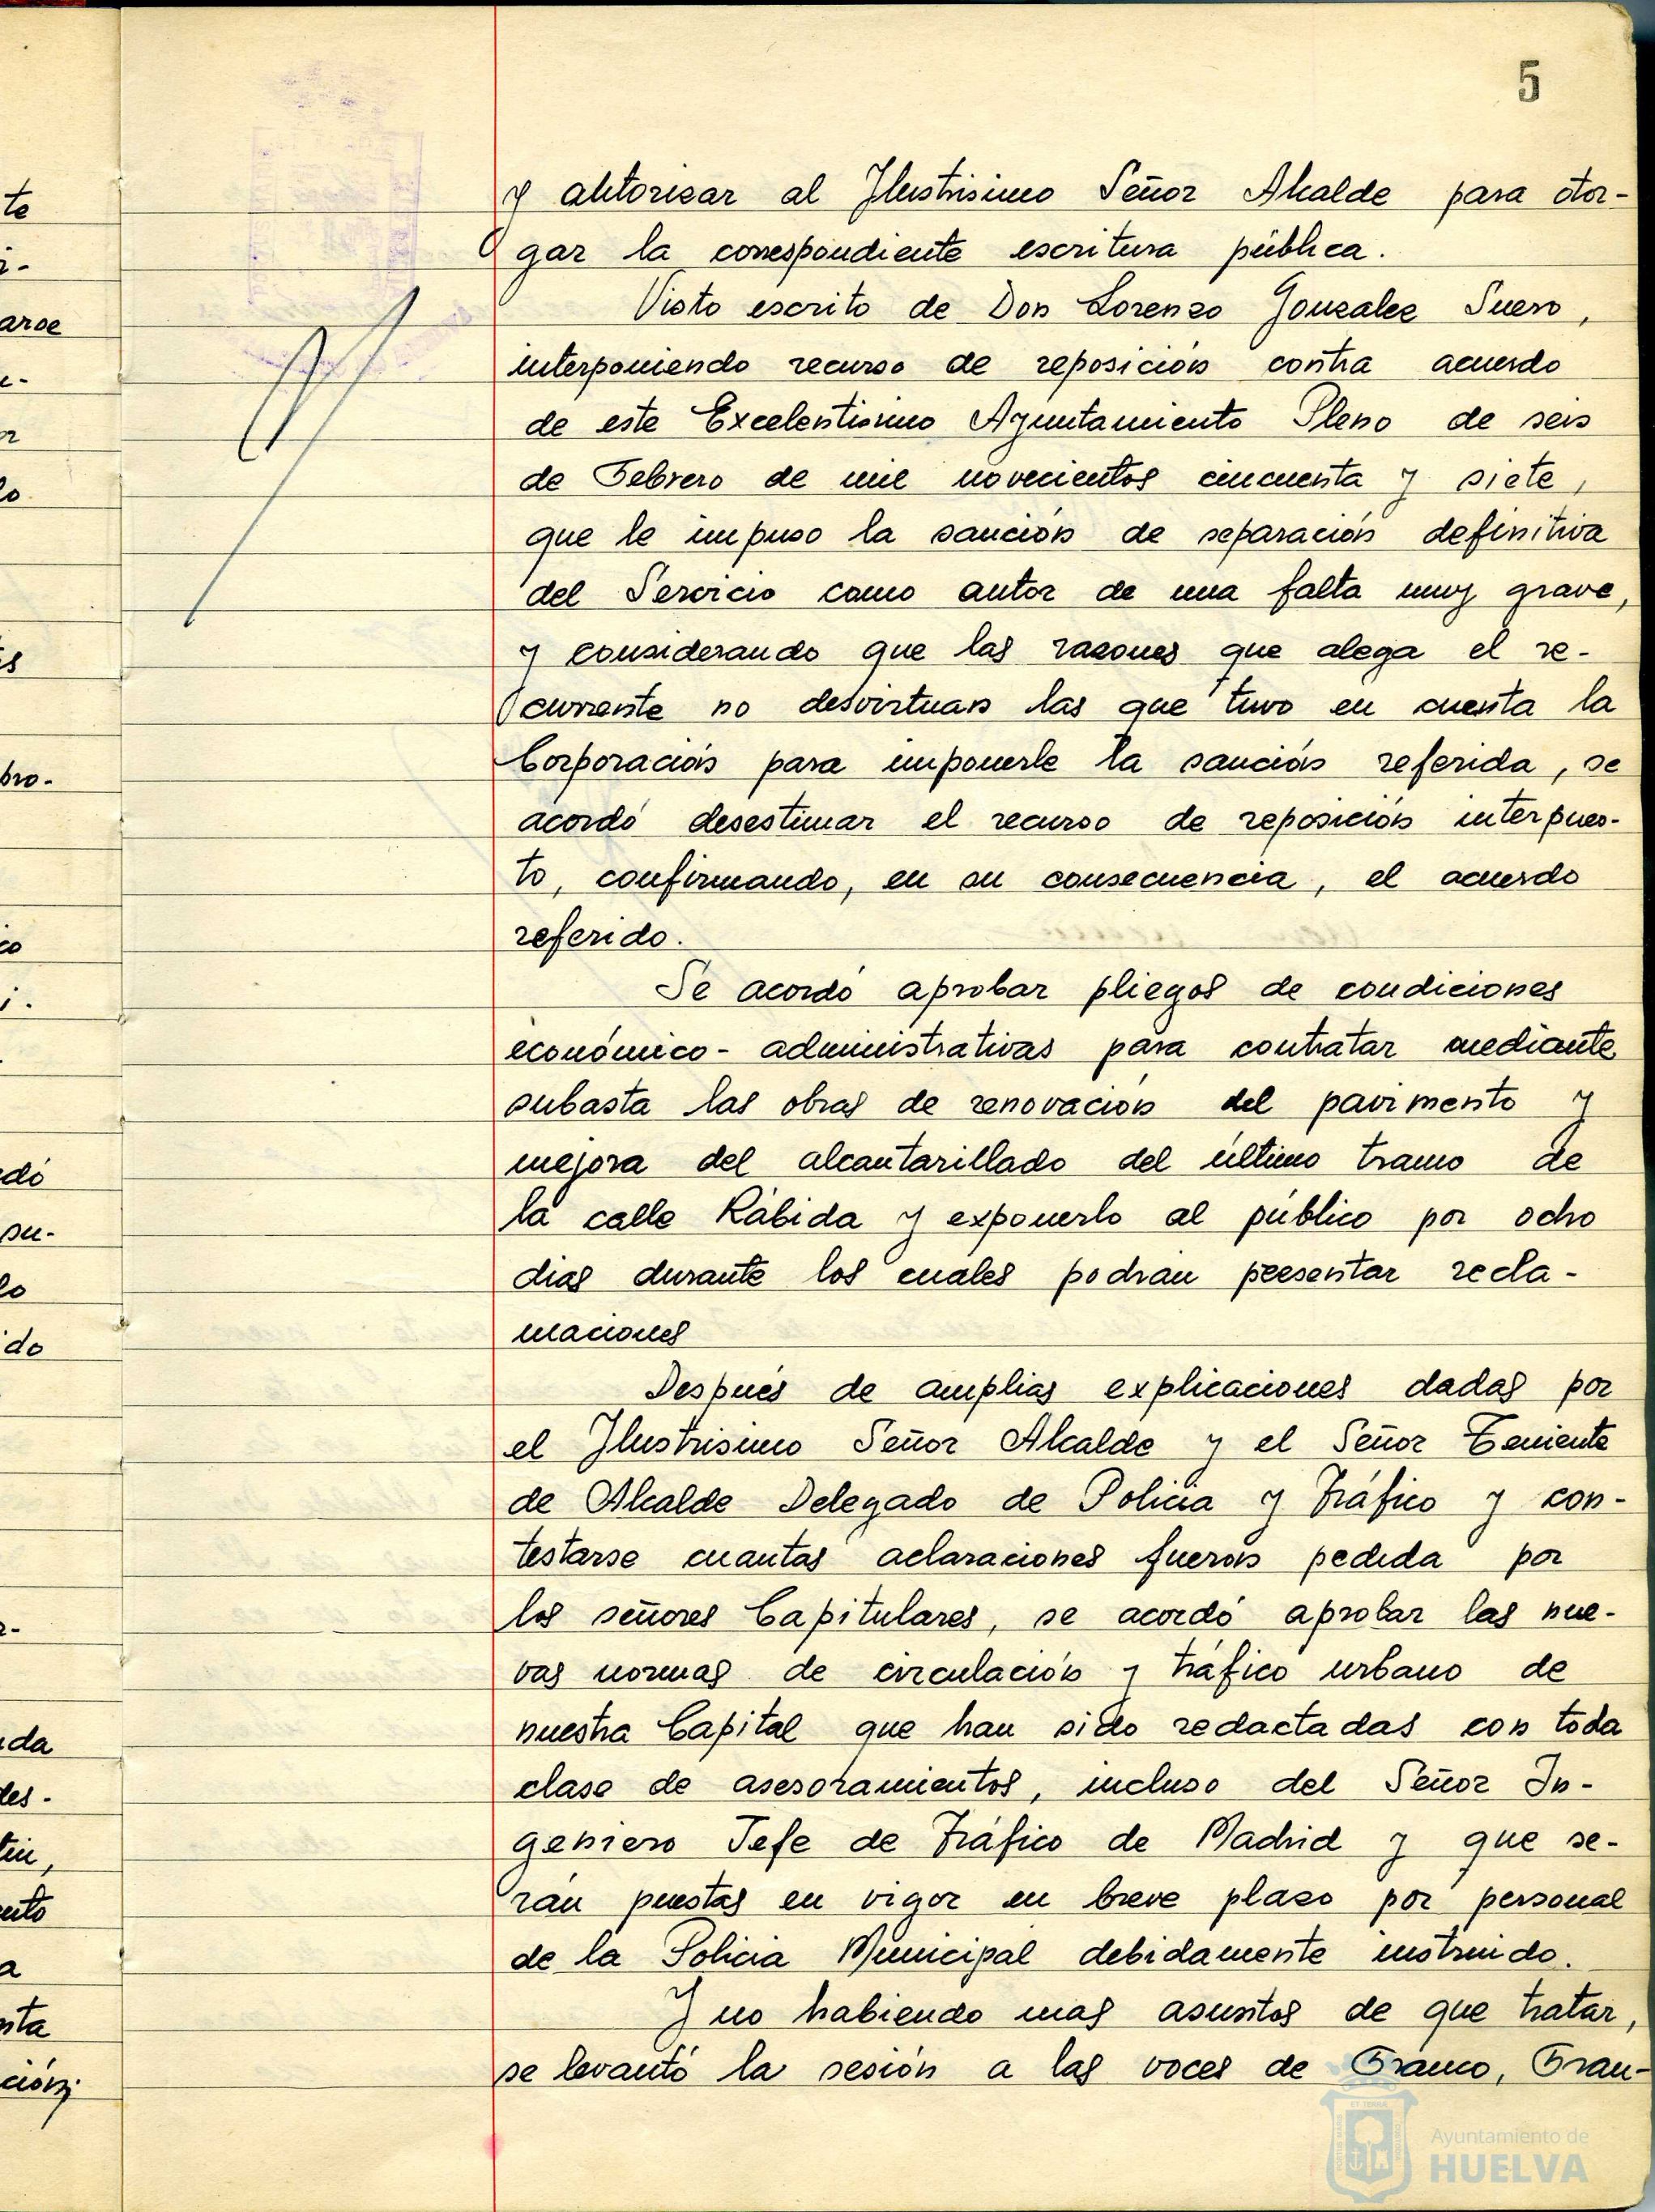 5
te
i-
arse
or
lo
bro-
co
dó
su-
lo
ido
da
des-
uto
a
nta
ción;
y autorizar al Ilustrisimo Señor Alcalde para otor-
gar la correspondiente escritura pública.
Visto escrito de Don Lorenzo Gonzalez Suero,
interponiendo recurso de reposición contra acuerdo
de este Excelentisimo Ayuntamiento Pleno de seis
de Febrero de mil novecientos cincuenta y siete,
que le impuso la sanción de separación definitiva
del Servicio como autor de una falta muy grave,
y considerando que las razones que alega el re-
currente no desvirtuan las que tuvo en cuenta la
Corporación para imponerle la sanción referida, se
acordó desestimar el recurso de reposición interpues-
to, confirmando, en su consecuencia, el acuerdo
referido.
Se acordó aprobar pliegos de condiciones
económico-administrativas para contratar mediante
subasta las obras de renovación del pavimento y
mejora del alcantarillado del último tramo de
la calle Rábida y exponerlo al público por ocho
dias durante los cuales podran presentar recla-
maciones
Después de amplias explicaciones dadas por
el Ilustrisimo Señor Alcalde y el Señor Teniente
de Alcalde Delegado de Policia y Tráfico y con-
testarse cuantas aclaraciones fueron pedida por
los señores Capitulares, se acordó aprobar las nue-
vas normas de circulación y tráfico urbano de
nuestra Capital que han sido redactadas con toda
clase de asesoramientos, incluso del Señor In-
geniero Jefe de Tráfico de Madrid y que se-
rán puestas en vigor en breve plazo por personal
de la Policia Municipal debidamente instruido.
Y no habiendo mas asuntos de que tratar,
se levantó la sesión a las voces de Franco, Fran-
Ayuntamiento de
HUELVA